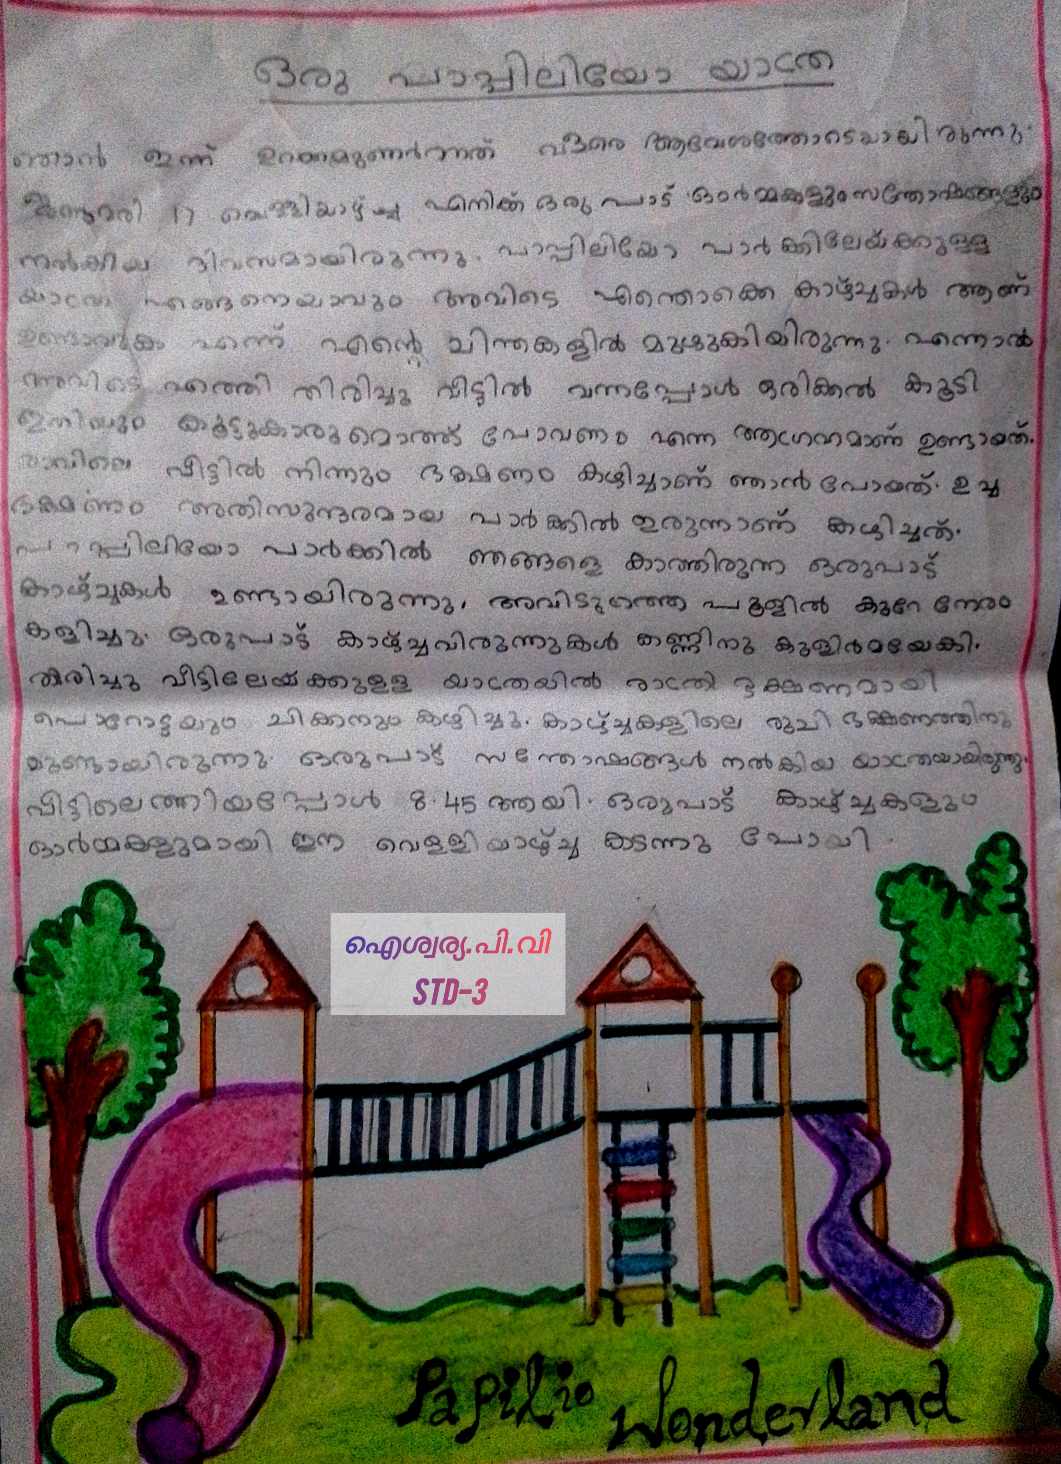 ഒരു പാപ്പിലിയോ യാത്ര
ഞാൻ ഇന്ന് ഉറക്കമുണർന്നത് വളരെ ആവേശത്തോടെയായിരുന്നു.
ജനുവരി 17 വെള്ളിയാഴ്ച്ച എനിക്ക് ഒരുപാട് ഓർമ്മകളും സന്തോഷങ്ങളും
നൽകിയ ദിവസമായിരുന്നു. പാപ്പിലിയോ പാർക്കിലേയ്ക്കുള്ള
യാത്ര എങ്ങനെയാവും അവിടെ എന്തൊക്കെ കാഴ്ച്ചകൾ ആണ്
ഉണ്ടാവുക എന്ന് എന്റെ ചിന്തകളിൽ മുഴുകിയിരുന്നു. എന്നാൽ
അവിടെ എത്തി തിരിച്ചു വീട്ടിൽ വന്നപ്പോൾ ഒരിക്കൽ കൂടി
ഇനിയും കൂട്ടുകാരുമൊത്ത് പോവണം എന്ന ആഗ്രഹമാണ് ഉണ്ടായത്.
രാവിലെ വീട്ടിൽ നിന്നും ഭക്ഷണം കഴിച്ചാണ് ഞാൻ പോയത്. ഉച്ച
ഭക്ഷണം അതിസുന്ദരമായ പാർക്കിൽ ഇരുന്നാണ് കഴിച്ചത്.
പാപ്പിലിയോ പാർക്കിൽ ഞങ്ങളെ കാത്തിരുന്ന ഒരുപാട്
കാഴ്ച്ചകൾ ഉണ്ടായിരുന്നു, അവിടുത്തെ പൂളിൽ കുറേ നേരം
കളിച്ചു. ഒരുപാട് കാഴ്ച്ചവിരുന്നുകൾ കണ്ണിനു കുളിർമയേകി.
തിരിച്ചു വീട്ടിലേയ്ക്കുള്ള യാത്രയിൽ രാത്രി ഭക്ഷണമായി
പൊറോട്ടയും ചിക്കനും കഴിച്ചു. കാഴ്ച്ചകളിലെ രുചി ഭക്ഷണത്തിനു
മുണ്ടായിരുന്നു. ഒരുപാട് സന്തോഷങ്ങൾ നൽകിയ യാത്രയായിരുന്നു.
വീട്ടിലെത്തിയപ്പോൾ 8.45 ആയി. ഒരുപാട് കാഴ്ച്ചകളും
ഓർമ്മകളുമായി ഈ വെള്ളിയാഴ്ച്ച കടന്നു പോയി.
ഐശ്വര്യ.പി.വി
STD-3
Papilio Wonderland